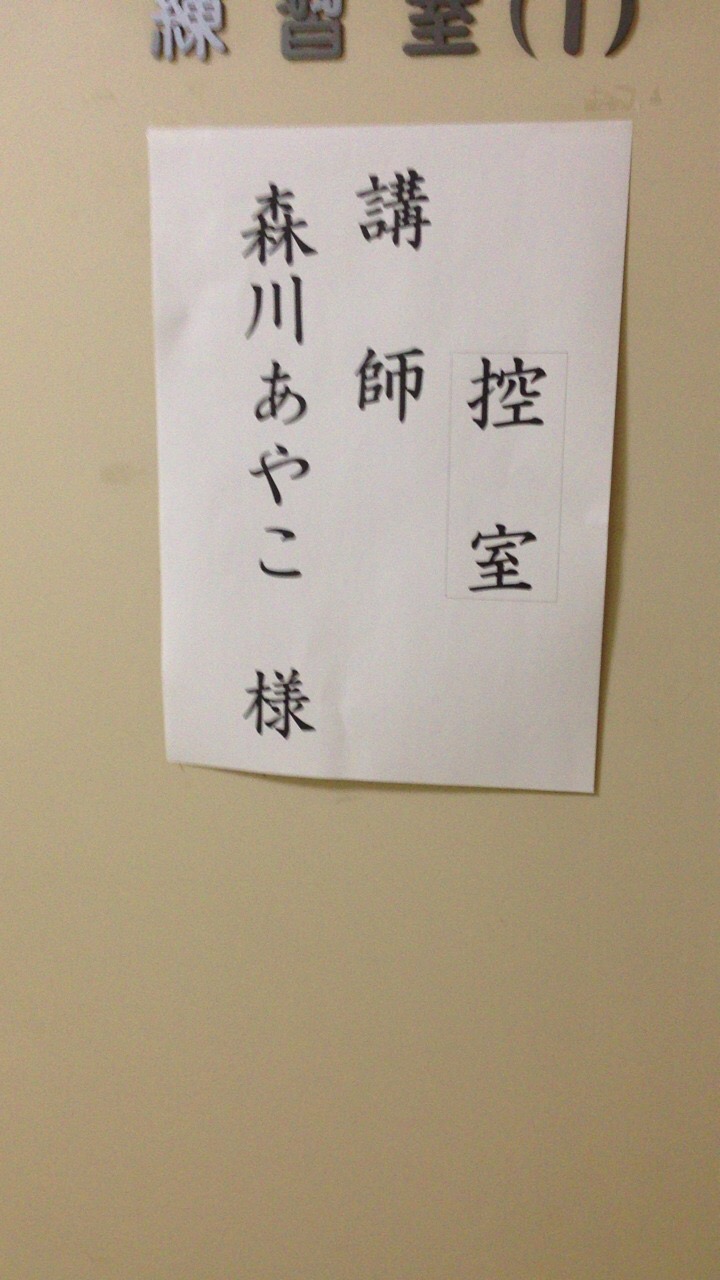 練習室(1)
控室
講師
森川あやこ 様